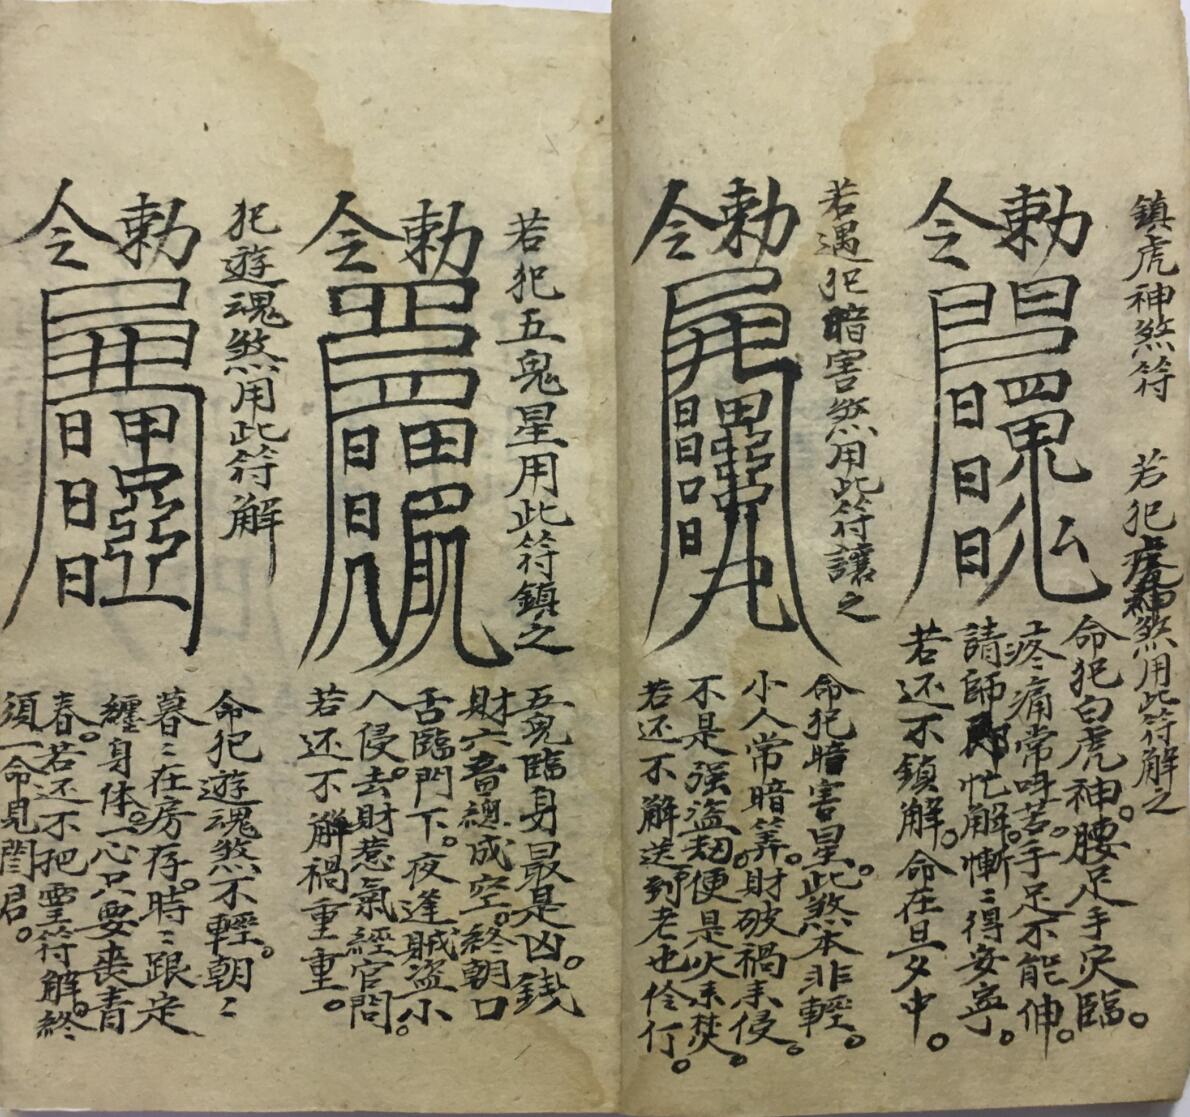 鎮虎神煞符
若犯虎神煞用此符解之
勅令
命犯白虎神。腰足手灾臨。
疼痛常叫苦。手足不能伸。
請師郎忙解。慚〻得安寧。
若还不鎮解。命在旦夕中。
若遇犯暗害煞用此符讓之
勅令
命犯暗害星。此煞本非輕。
小人常暗筭。財破禍来侵。
不是强盗刼。便是火来焚。
若还不解送。到老也伶仃。
若犯五鬼星用此符鎮之
勅令
五鬼臨身最是凶。錢
財六畜總成空。終朝口
舌臨門下。夜逢賊盗小
人侵。去財惹氣經官問。
若还不解禍重重。
犯遊魂煞用此符解
勅令
命犯遊魂煞不輕。朝〻
暮〻在房存。時〻跟定
纏身体。一心只要喪青
春。若还不把靈符解。終
須一命見閻君。